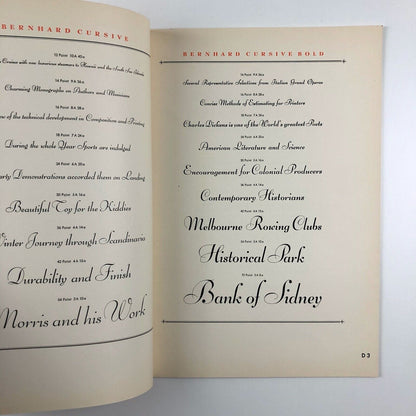 BERNHARD CURSIVE
12 Point 10A 40a
Cruise with new luxurious steamers to Hawaii and the South Sea Islands
14 Point 9A 36a
Charming Monographs on Authors and Musicians
16 Point 9A 28a
of the technical development in Composition and Printing
18 Point 7A 24a
During the whole Year Sports are indulged
Demonstrations accorded them on Landing
Beautiful Toy for the Kiddies
36 Point 4A 14a
Winter Journey through Scandinavia
42 Point 4A 12a
Durability and Finish
54 Point 3A 10a
Morris and his Work
BERNHARD CURSIVE BOLD
Several Representative Selections from Italian Grand Operas
Concise Methods of Estimating for Printers
Charles Dickens is one of the World's greatest Poets
American Literature and Science
Encouragement for Colonial Producers
Contemporary Historians
Melbourne Rowing Clubs
Historical Park
Bank of Sidney
D 3